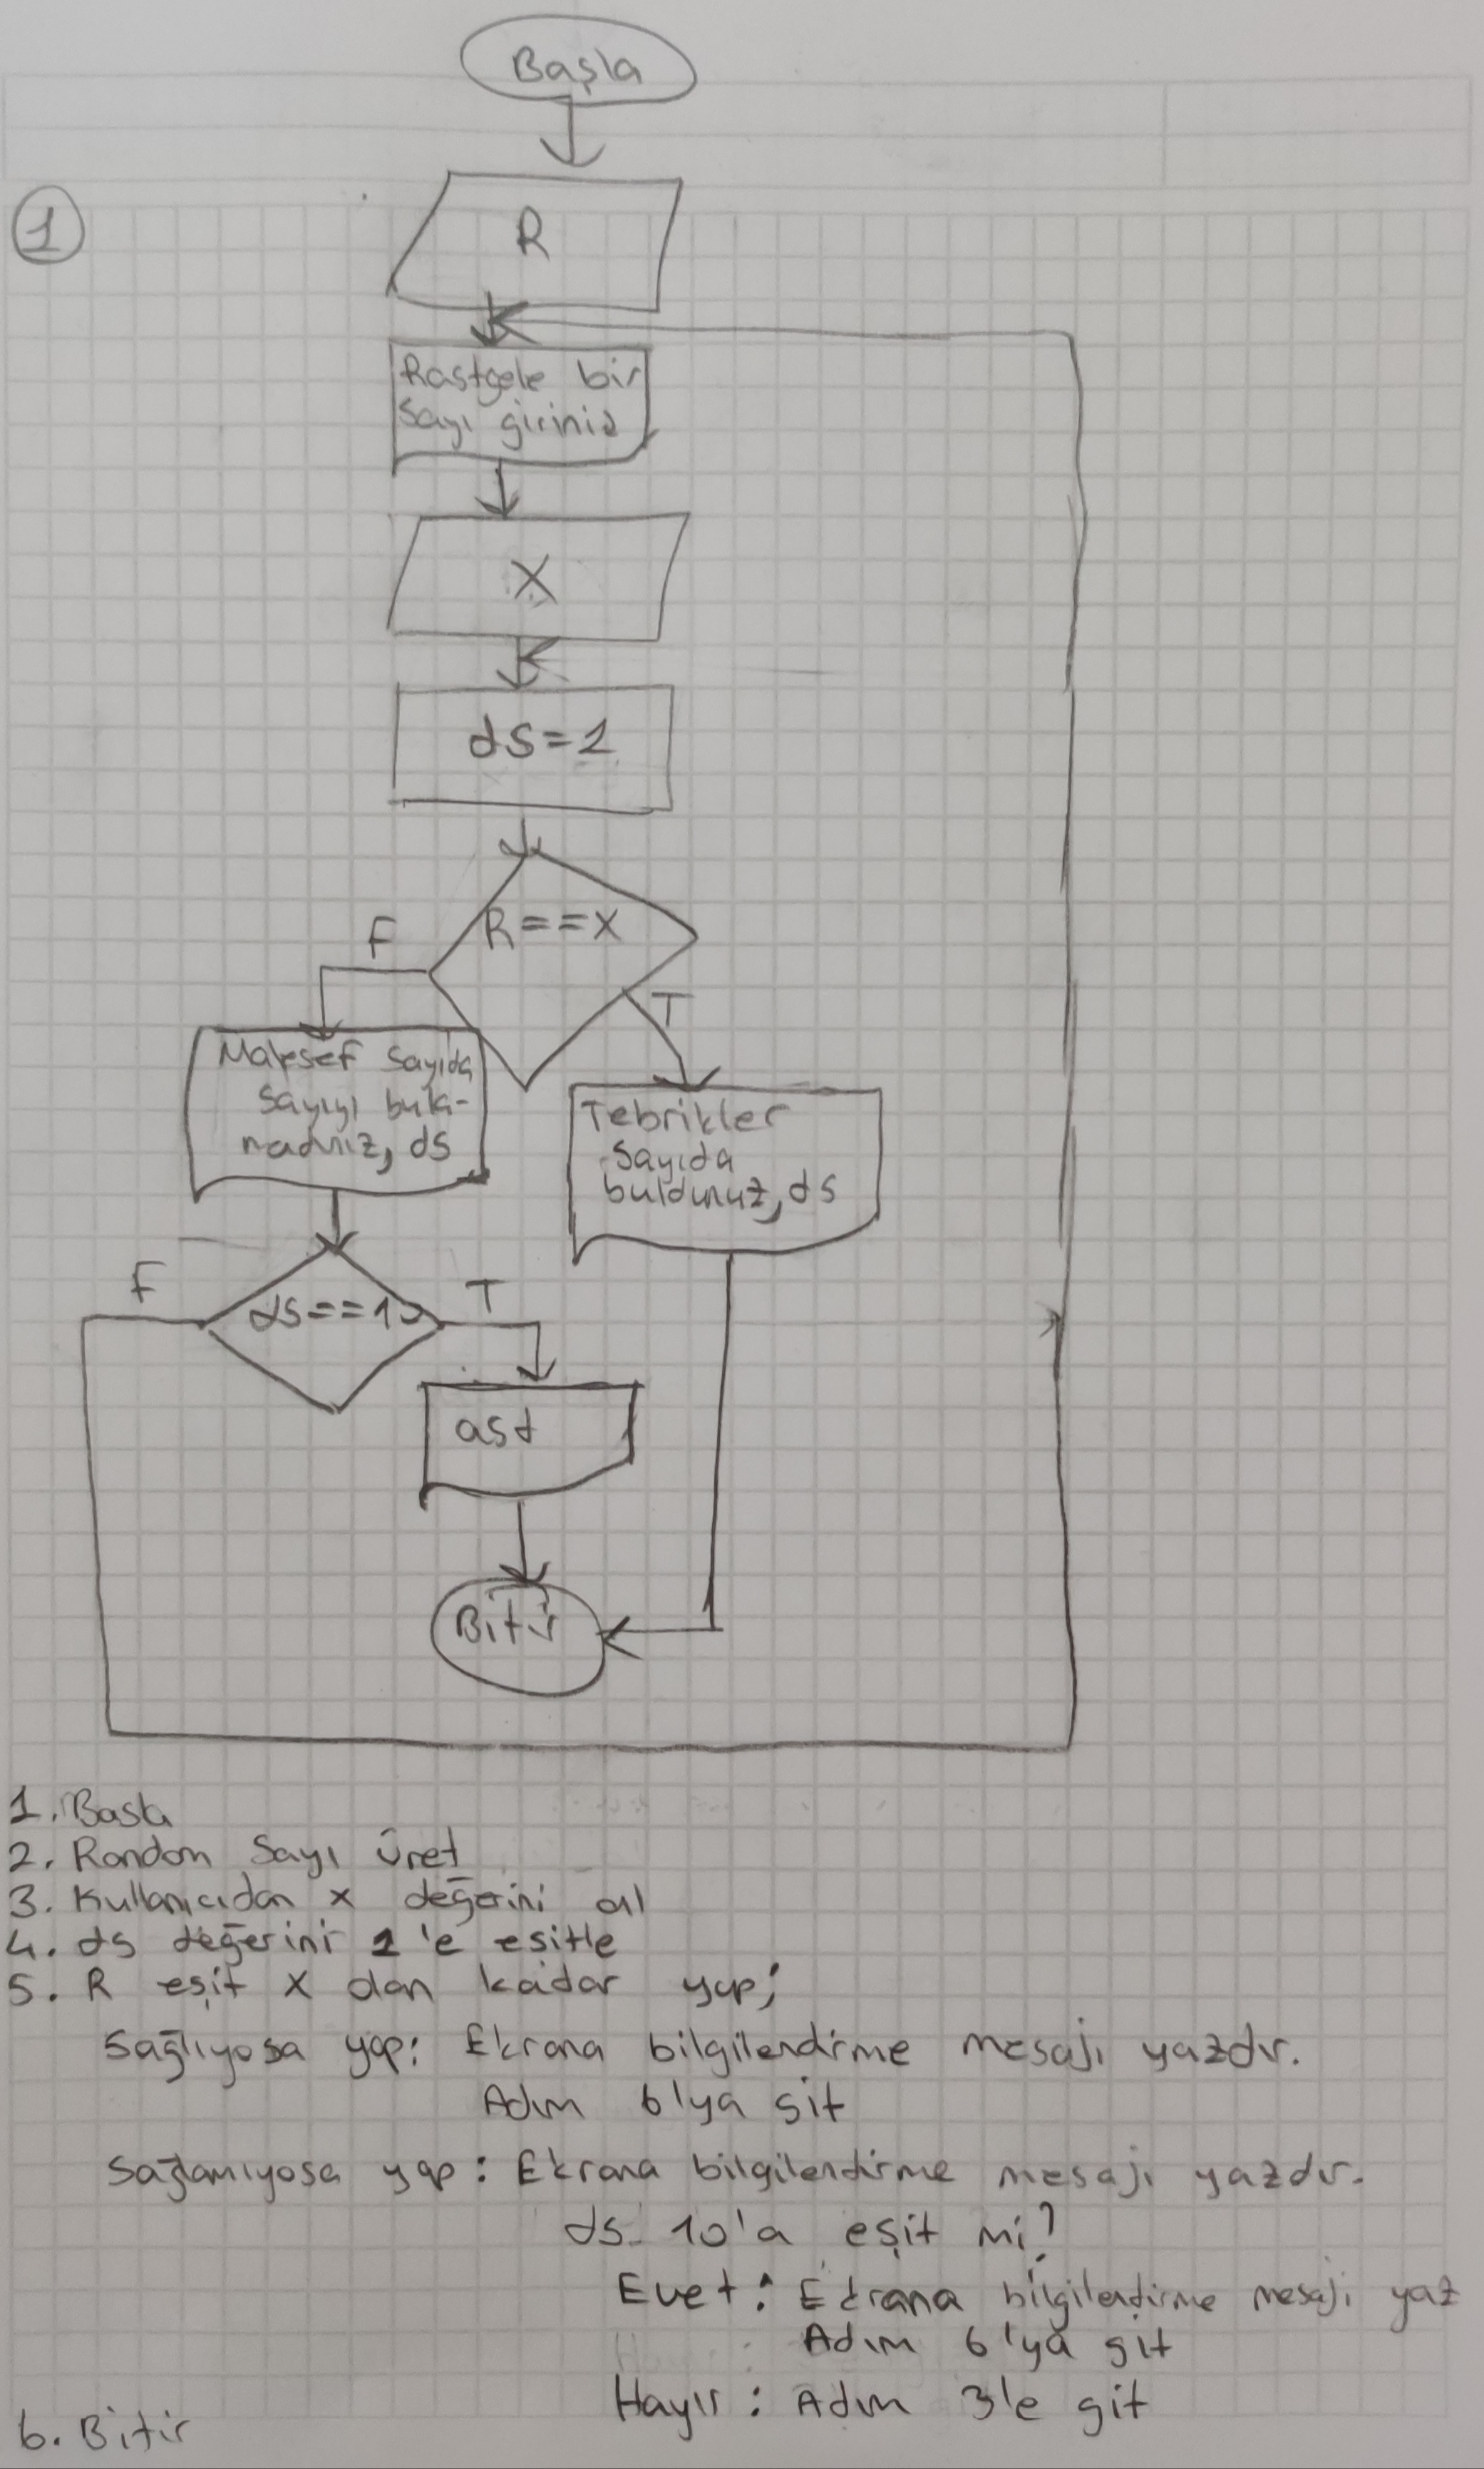 Başla
1
R
Rastgele bir
sayı giriniz
X
ds=1
R==X
F
T
Malesef sayıda
sayıyı bula-
madınız, ds
Tebrikler
sayıda
buldunuz, ds
F
ds==10
T
asd
Bitir
1. Basla
2. Random Sayı Üret
3. Kullanıcıdan x değerini al
4. ds değerini 1'e eşitle
5. R eşit X olan kadar yap;
Sağlıyosa yap: Ekrana bilgilendirme mesajı yazdır.
Adım 6'ya git
Sağlamıyosa yap: Ekrana bilgilendirme mesajı yazdır.
ds 10'a eşit mi?
Evet: Ekrana bilgilendirme mesajı yaz
Adım 6'ya git
Hayır: Adım 3'e git
6. Bitir